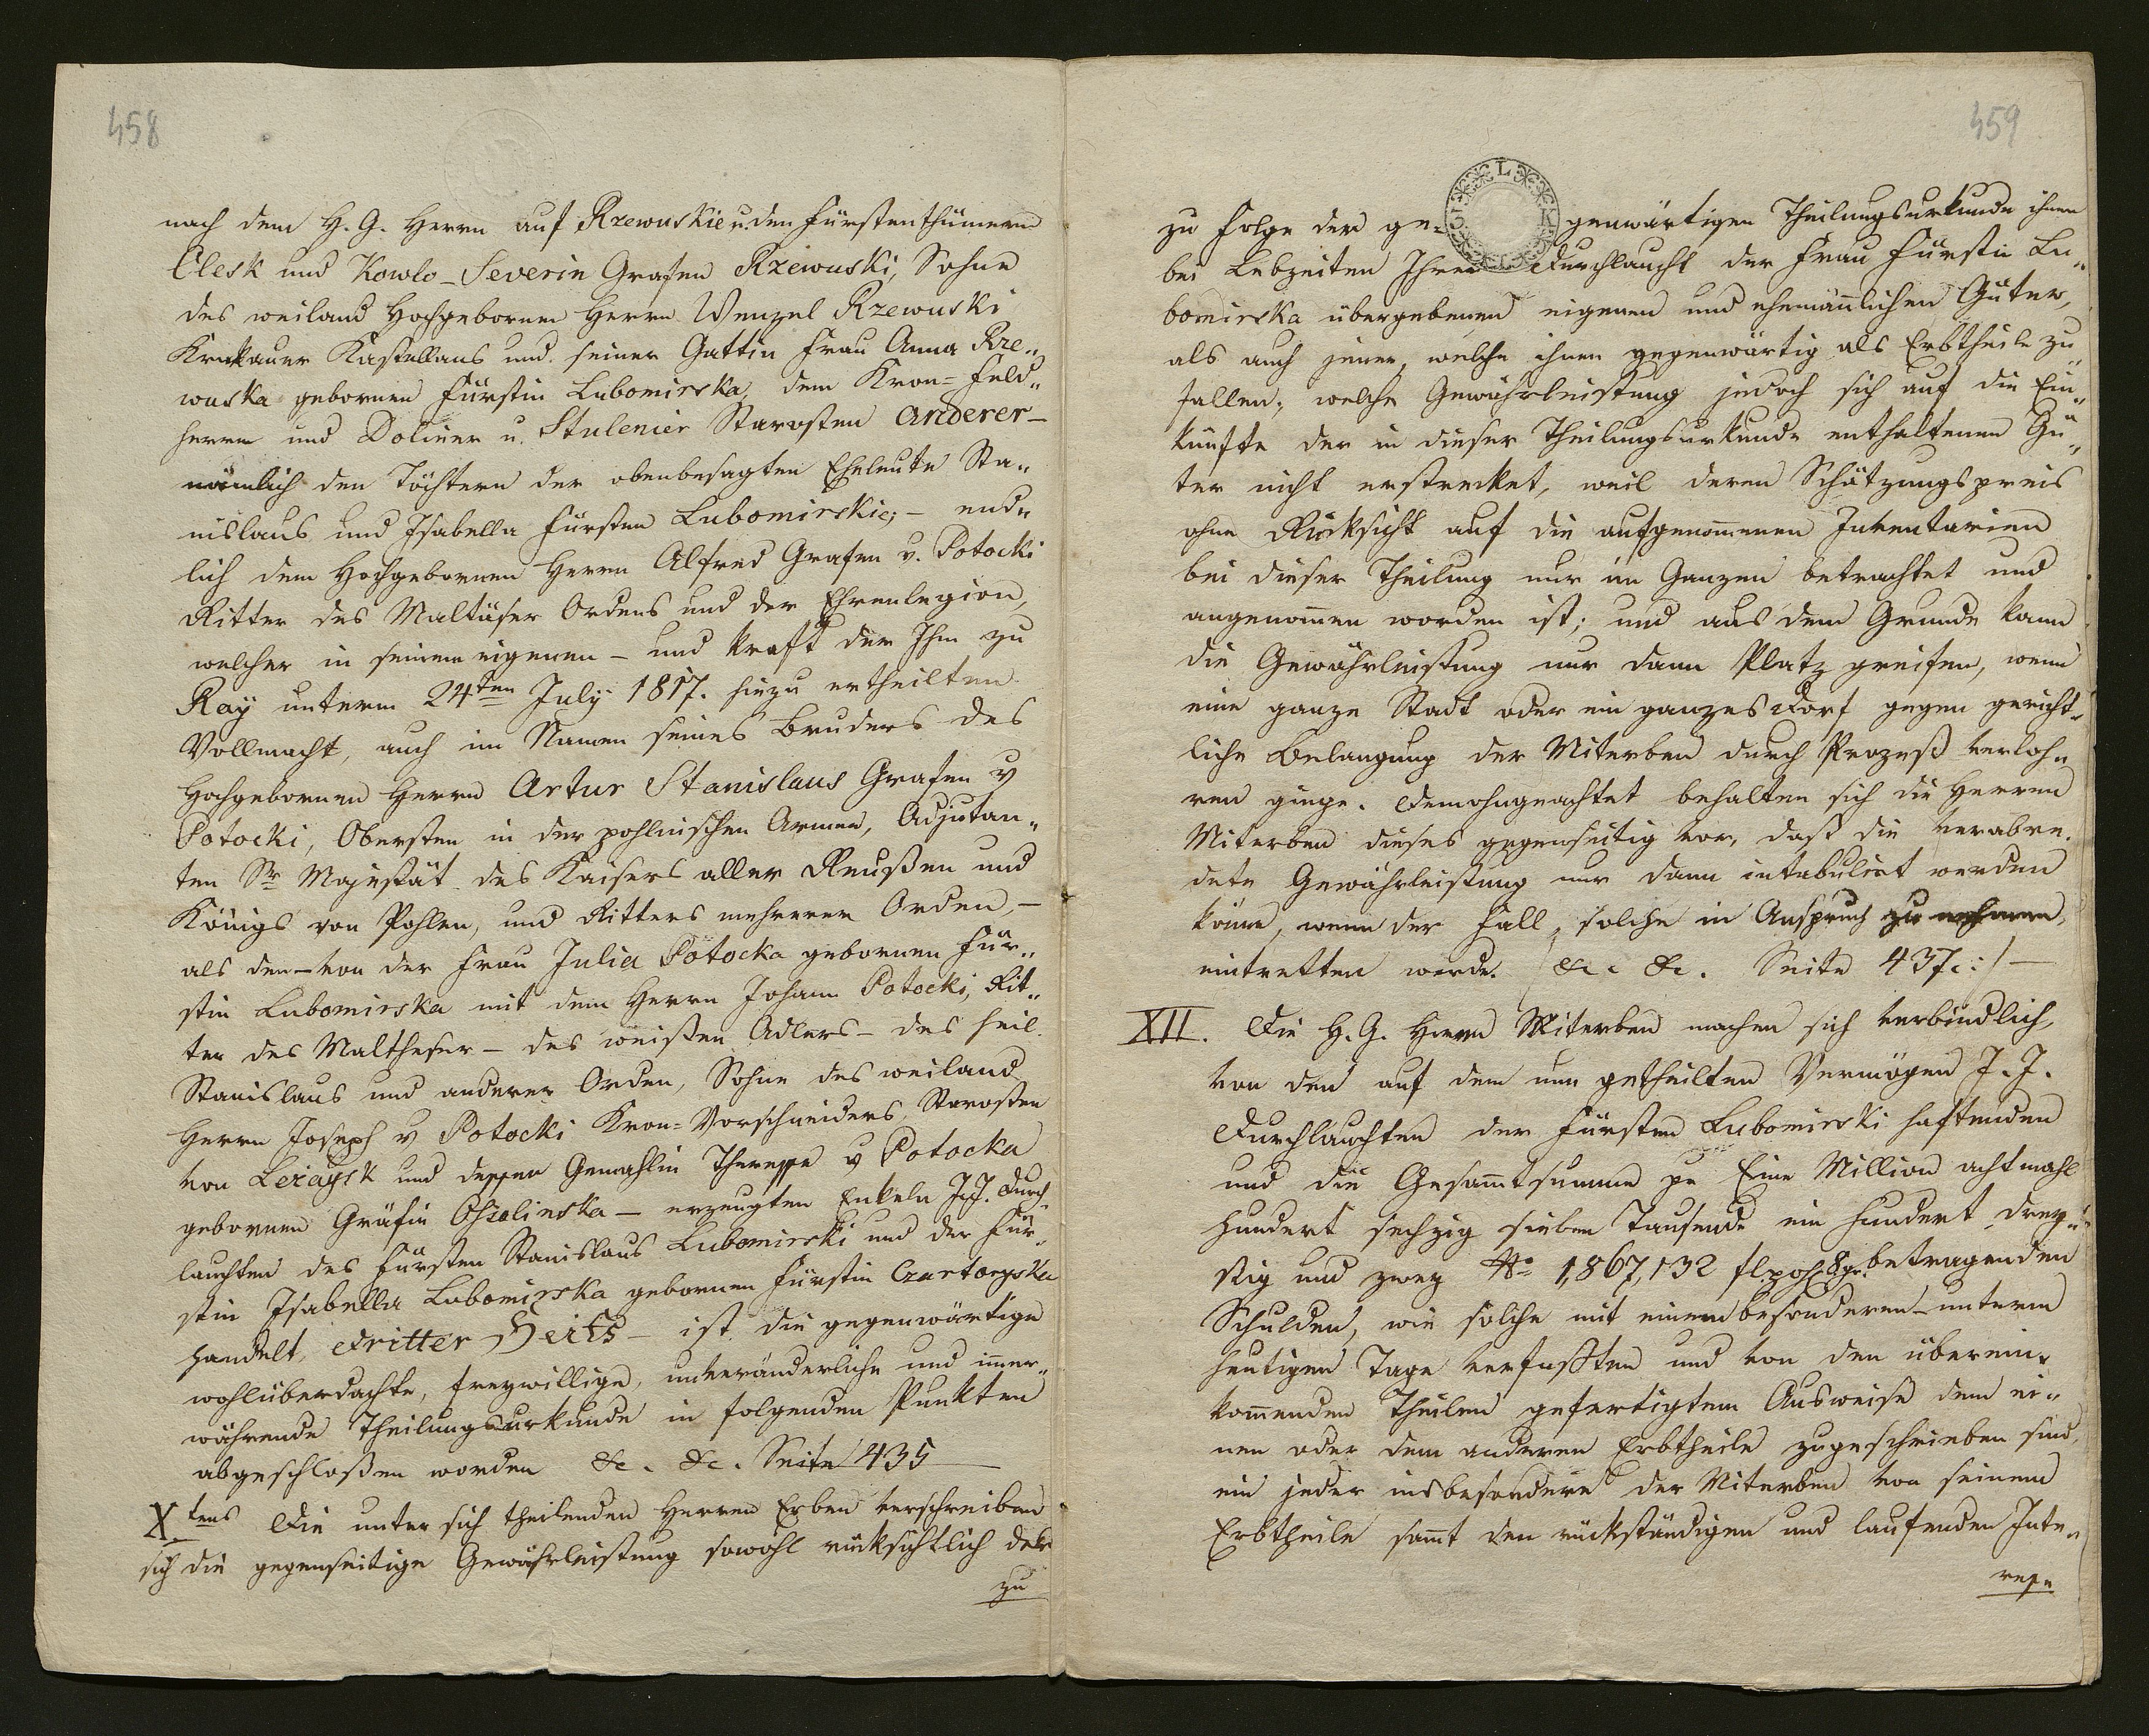 458
nach dem H. G. Herrn auf Rzewuskie u. den Fürstenthümern
Olesk und Kowlo – Severin Grafen Rzewuski, Sohne
des weiland Hochgebornen Herrn Wenzel Rzewuski
Krakauer Kastellans und seiner Gattin Frau Anna Rze„
wuska gebornen Fürstin Lubomirska, dem Kron=Feld„
herrn und Doliner u. Stulenier Starosten Anderer –
nämlich den Töchtern der obenbesagten Eheleute Sta„
nislaus und Isabella Fürsten Lubomirskie; – end„
lich dem Hochgebornen Herrn Alfred Grafen v. Potocki
Ritter des Maltäser Ordens und der Ehrenlegion,
welcher in seinem eigenen – und kraft der Ihm zu
Ray unterm 24ten July 1817. hiezu ertheilten
Vollmacht, auch im Namen seines Bruders des
Hochgebornen Herrn Artur Stanislaus Grafen v
Potocki, Obersten in der pohlnischen Armee, Adjutan„
ten Sr Majestät des Kaisers aller Reußen und
Königs von Pohlen, und Ritters mehrerer Orden, –
als den – von der Frau Julia Potocka gebornen Für„
stin Lubomirska mit dem Herrn Johann Potocki, Rit„
ter des Malthefer – des weißen Adlers – des heil.
Stanislaus und anderer Orden, Sohne des weiland
Herrn Joseph v Potocki Kron=Vorschneiders, Starosten
von Leżaysk und dessen Gemahlin Theresse v Potocka
gebornen Gräfin Ossolinska – erzeugten Enkeln J.J. Durch„
lauchten des Fürsten Stanislaus Lubomirski und der Für„
stin Isabella Lubomirska gebornen Fürstin Czartoryska
handelt, dritter Seits – ist die gegenwärtige
wohlüberdachte, freywillige, unveränderliche und immer„
währende Theilungsurkunde in folgenden Punkten
abgeschloßen worden &c. &c. Seite 435
Xtens Die unter sich theilenden Herren Erben verschreiben
sich die gegenseitige Gewährleistung sowohl rücksichtlich der
zu
459
zu Folge der ge= genwärtigen Theilungsurkunde ihnen
bei Lebzeiten Ihrer Durchlaucht der Frau Fürstin Lu„
bomirska übergebenen eigenen und ehemännlichen Güter,
als auch jener, welche ihnen gegenwärtig als Erbtheile zu„
fallen; welche Gewährleistung jedoch sich auf die Ein„
künfte der in dieser Theilungsurkunde enthaltenen Gü„
ter nicht erstrecket, weil deren Schätzungspreis
ohne Rücksicht auf die aufgenommenen Inventarien
bei dieser Theilung nur im Ganzen betrachtet und
angenommen worden ist; und aus dem Grunde kann
die Gewährleistung nur dann Platz greifen, wenn
eine ganze Stadt oder ein ganzes Dorf gegen gericht„
liche Belangung der Miterben durch Prozeß verloh„
ren ginge. Demohngeachtet behalten sich die Herren
Miterben dieses gegenseitig vor, daß die verabre„
dete Gewährleistung nur dann intabulirt werden
könne, wenn der Fall, solche in Anspruch zu nehmen,
eintretten werde. &c. &c. Seite 437:/ –
XII. Die H. G. Herrn Miterben machen sich verbindlich,
von den auf dem nun getheilten Vermögen J. J.
Durchlauchten der Fürsten Lubomirski haftenden
und die Gesamtsumme pr Eine Million achtmahl
hundert sechzig sieben Tausende ein hundert drey„
ßig und zwey No 1,867,132 flpohl 8 gr. betragenden
Schulden, wie solche mit einem besonderen – unterm
heutigen Tage verfaßten und von den überein„
kommenden Theilen gefertigtem Ausweise dem ei„
nen oder dem anderen Erbtheile zugeschrieben sind,
ein jeder insbesondere der Miterben von seinem
Erbtheile samt den rückständigen und laufenden Inte„
res„